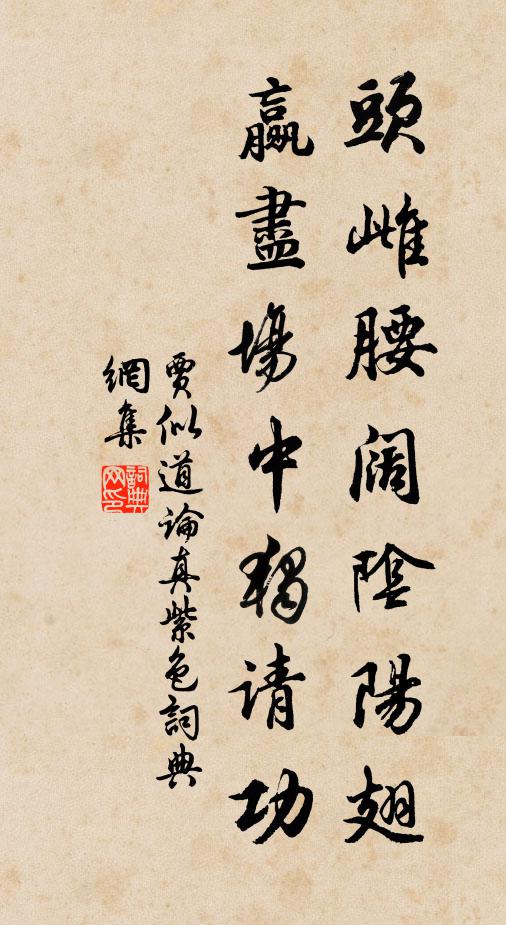 頭雌腰阔陰陽翅
贏盡場中獨请功
賈似道論真紫色詞典
網集
詞典
网印